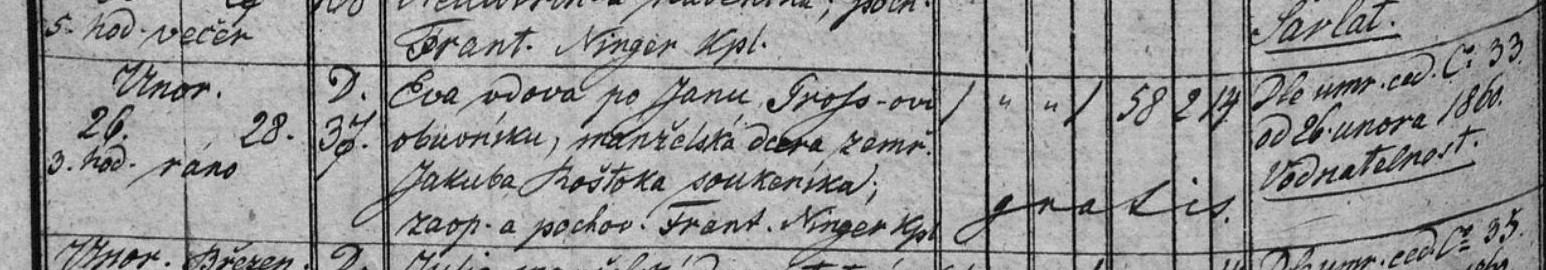 5. hod. večér
Frant. Ninger Kpl.
Šarlat.
Unor. D. Eva vdova po Janu Gross-ovi / " " / 58 2 14 Dle umr. ced. Co. 33.
26. 28. 37. obuvníku, manželská dcera zemř. od 26. unora 1860.
3. hod. ráno Jakuba Koštoka soukeníka; Vodnatelnost.
zaop. a pochov. Frant. Ninger Kpl gratis.
Unor. Březen. D. Dle umr. ced. Co. 35.